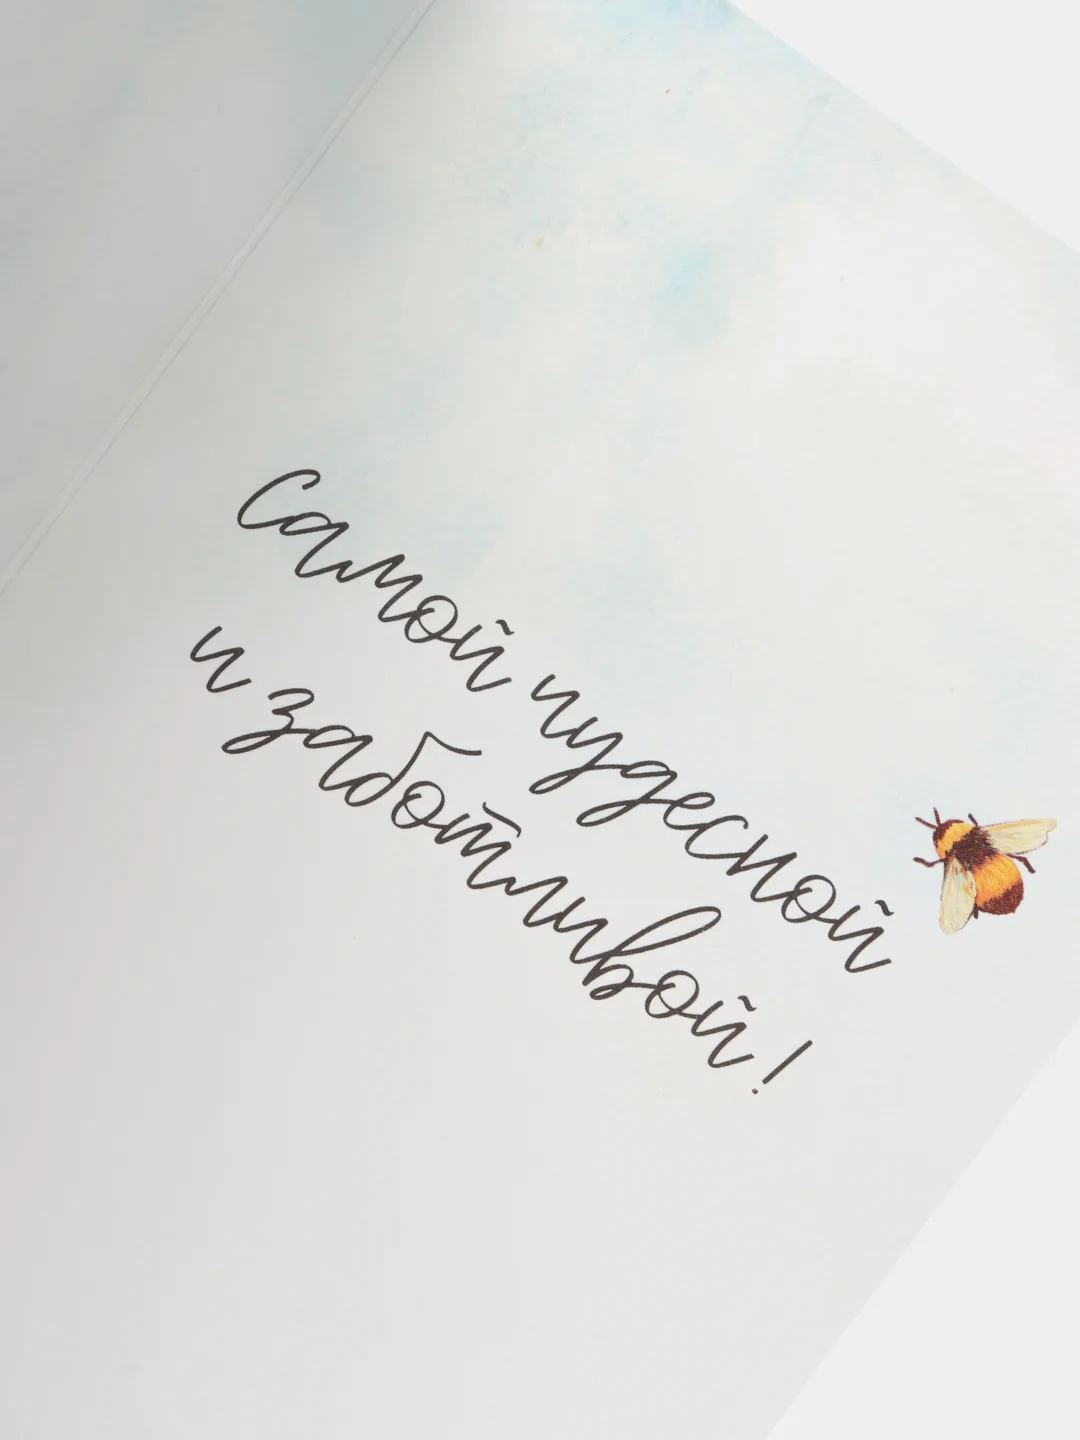 Самой чудесной
и заботливой!